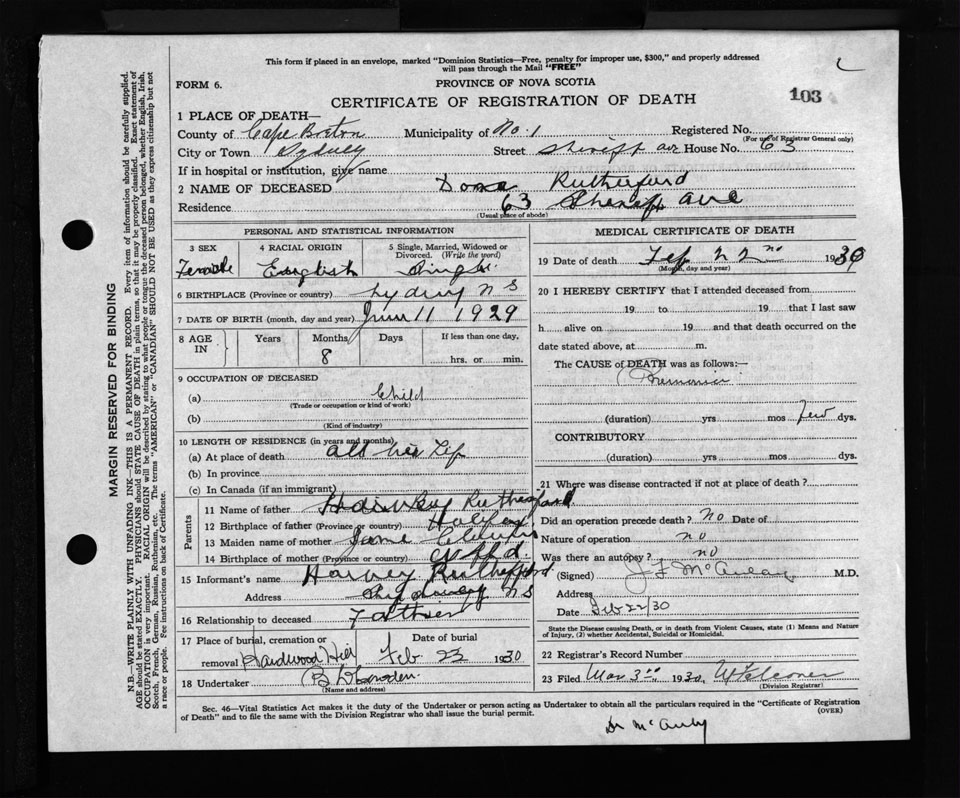 This form if placed in an envelope, marked "Dominion Statistics—Free, penalty for improper use, $300," and properly addressed
will pass through the Mail "FREE"
FORM 6.
PROVINCE OF NOVA SCOTIA
CERTIFICATE OF REGISTRATION OF DEATH
103
1 PLACE OF DEATH—
County of Cape Breton Municipality of No. 1 Registered No.
(For use of Registrar General only)
City or Town Sydney Street Sheriff ave House No. 63
If in hospital or institution, give name
2 NAME OF DECEASED Rutherford
Residence 63 Sheriff ave
(Usual place of abode)
PERSONAL AND STATISTICAL INFORMATION
3 SEX 4 RACIAL ORIGIN 5 Single, Married, Widowed or Divorced. (Write the word)
Female English Single
6 BIRTHPLACE (Province or country) Sydney N S
7 DATE OF BIRTH (month, day and year) June 11 1929
8 AGE IN Years Months Days If less than one day,
8 hrs. or min.
9 OCCUPATION OF DECEASED
(a) Child
(Trade or occupation or kind of work)
(b)
(Kind of industry)
10 LENGTH OF RESIDENCE (in years and months)
(a) At place of death all her Life
(b) In province
(c) In Canada (if an immigrant)
Parents
11 Name of father Rutherford
12 Birthplace of father (Province or country) Halifax
13 Maiden name of mother
14 Birthplace of mother (Province or country)
15 Informant's name Harvey Rutherford
Address N S
16 Relationship to deceased Father
17 Place of burial, cremation or removal Hardwood Hill Date of burial Feb 23 1930
18 Undertaker
(Name and address)
MEDICAL CERTIFICATE OF DEATH
19 Date of death Feb 22 1930
(Month, day and year)
20 I HEREBY CERTIFY that I attended deceased from
19 to 19 that I last saw
h alive on 19 and that death occurred on the
date stated above, at m.
The CAUSE of DEATH was as follows:—
(duration) yrs mos few dys.
CONTRIBUTORY
(duration) yrs mos dys.
21 Where was disease contracted if not at place of death?
Did an operation precede death? no Date of
Nature of operation no
Was there an autopsy? no
(Signed) M.D.
Address
Date Feb 22/30
State the Disease causing Death, or in death from Violent Causes, state (1) Means and Nature
of Injury, (2) whether Accidental, Suicidal or Homicidal.
22 Registrar's Record Number
23 Filed Mar 3rd, 1930,
(Division Registrar)
Sec. 46—Vital Statistics Act makes it the duty of the Undertaker or person acting as Undertaker to obtain all the particulars required in the "Certificate of Registration
of Death" and to file the same with the Division Registrar who shall issue the burial permit. (OVER)
MARGIN RESERVED FOR BINDING
N.B.—WRITE PLAINLY WITH UNFADING INK—THIS IS A PERMANENT RECORD. Every item of information should be carefully supplied.
AGE should be stated EXACTLY. PHYSICIANS should STATE CAUSE OF DEATH in plain terms, so that it may be properly classified. Exact statement of
OCCUPATION is very important. RACIAL ORIGIN will be described by stating to what people or tongue the deceased person belonged, whether English, Irish,
Scotch, French, German, Russian, Ruthenian, etc. The terms "AMERICAN" or "CANADIAN" SHOULD NOT BE USED as they express citizenship but not
a race or people. See instructions on back of Certificate.